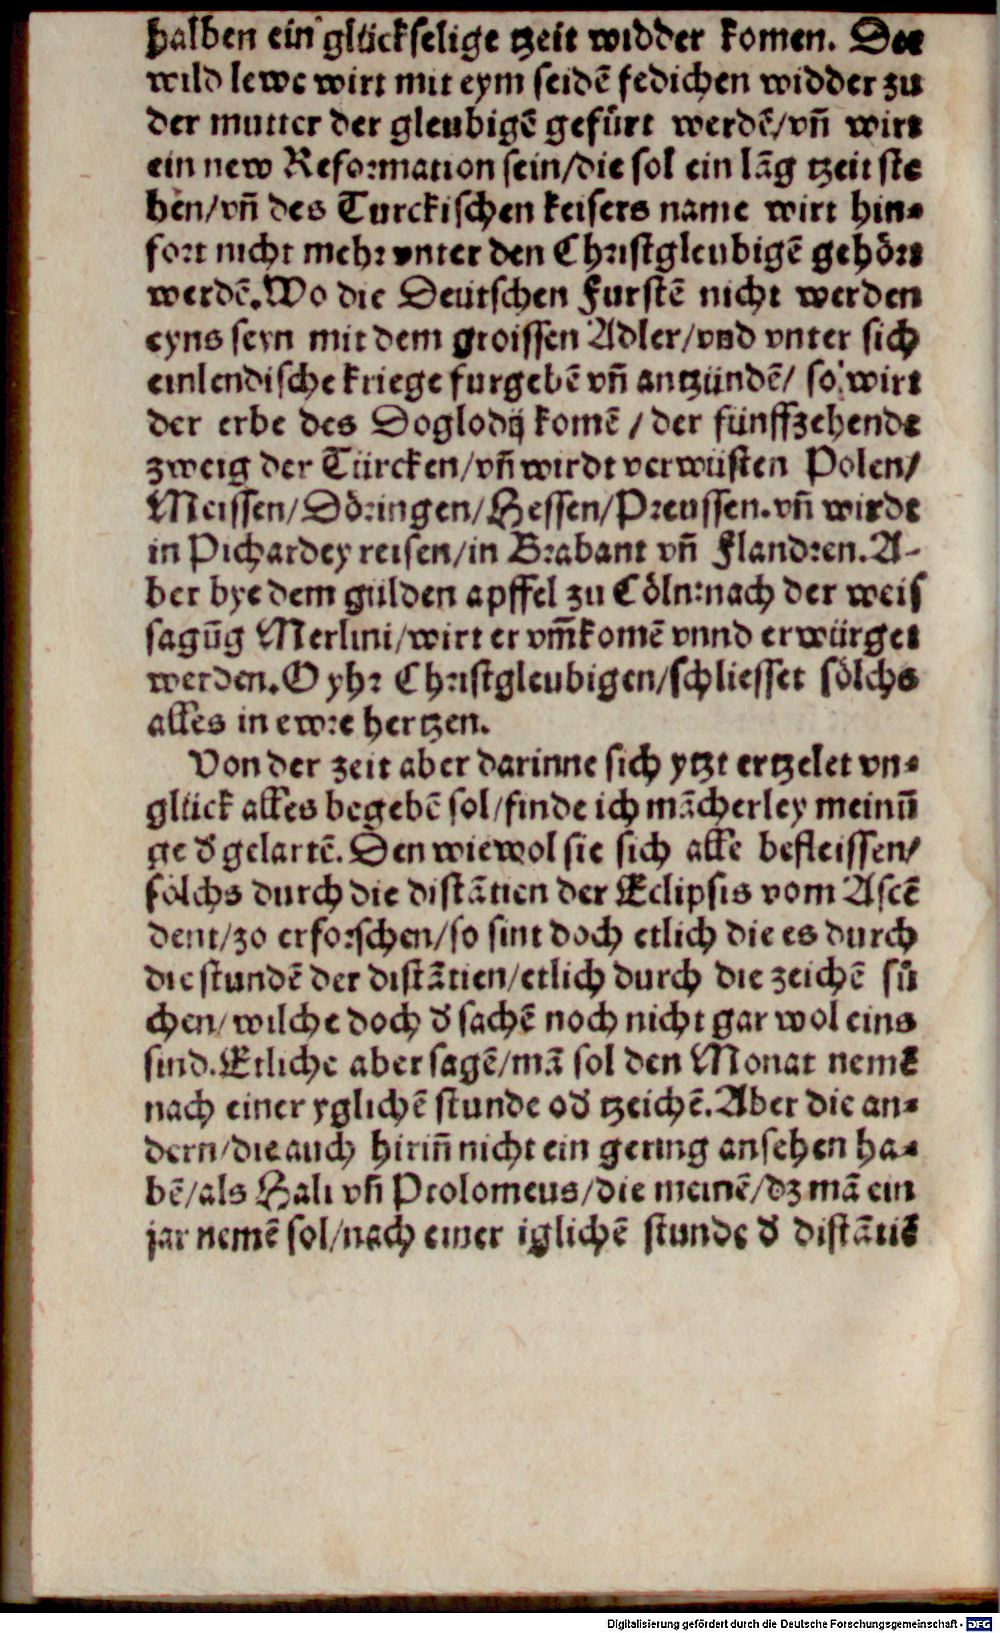 halben ein glückselige tzeit widder komen. Der
wild lewe wirt mit eym seidē fedichen widder zu
der mutter der gleubigē gefürt werdē/vñ wirt
ein new Reformation sein/die sol ein lāg tzeit ste
hen/vñ des Turckischen keisers name wirt hin⸗
fort nicht mehr vnter den Christgleubigē gehört
werdē. Wo die Deutschen Furstē nicht werden
eyns seyn mit dem groissen Adler/vnd vnter sich
einlendische kriege furgebē vñ antzündē/ so wirt
der erbe des Doglodij komē/der fünffzehende
zweig der Türcken/vñ wirdt verwüsten Polen/
Meissen/Döringen/Hessen/Preussen.vñ wirdt
in Pichardey reisen/in Brabant vñ Flandren.A-
ber bye dem gülden apffel zu Cöln:nach der weis
sagūg Merlini/wirt er vm̄komē vnnd erwürget
werden. O yhr Christgleubigen/schliesset sölchs
alles in ewre hertzen.
Von der zeit aber darinne sich ytzt ertzelet vn⸗
glück alles begebē sol/finde ich mācherley meinū
ge d̕ gelartē. Den wiewol sie sich alle befleissen/
sölchs durch die distātien der Eclipsis vom Ascē
dent/zo erforschen/so sint doch etlich die es durch
die stundē der distātien/etlich durch die zeichē sů
chen/wilche doch d̕ sachē noch nicht gar wol eins
sind. Etliche aber sagē/mā sol den Monat nemē
nach einer yglichē stunde od̕ tzeichē. Aber die an⸗
dern/die auch hirin̄ nicht ein gering ansehen ha⸗
bē/als Hali vñ Ptolomeus/die meinē/dz mā ein
jar nemē sol/nach einer iglichē stunde d̕ distātiē
Digitalisierung gefördert durch die Deutsche Forschungsgemeinschaft - DFG